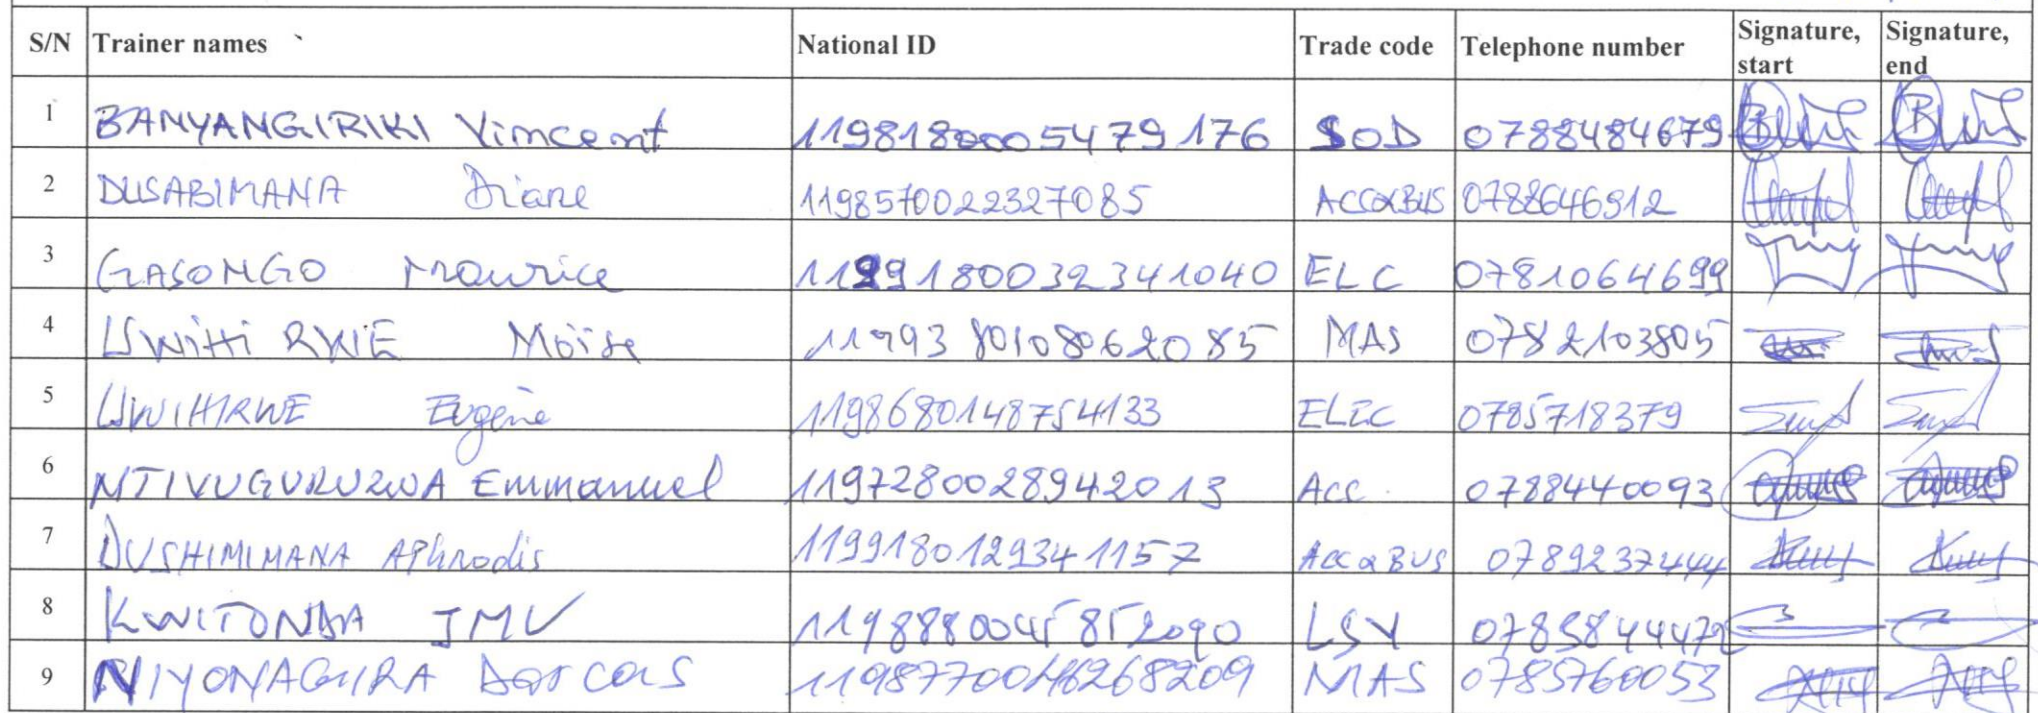 S/N Trainer names National ID Trade code Telephone number Signature, start Signature, end
1 BANYANGIRIKI Vincent 1198180005479176 SOD 0788484679
2 DUSABIMANA Diane 1198570022327085 ACC&BUS 0788646912
3 GASONGO Maurice 1199180032341040 ELC 0781064699
4 UWIHIRWE Moïse 1199380108062085 MAS 0782103805
5 UWIHIRWE Eugène 1198680148754133 ELEC 0785718379
6 NTIVUGURUZWA Emmanuel 1197280028942013 Acc. 0788440093
7 DUSHIMIMANA APhrodis 1199180129341157 Acc&BUS 0789237444
8 KWITONDA JMV 1198880045852090 LSV
9 NIYONAGIRA Dorcas MAS 0785760053